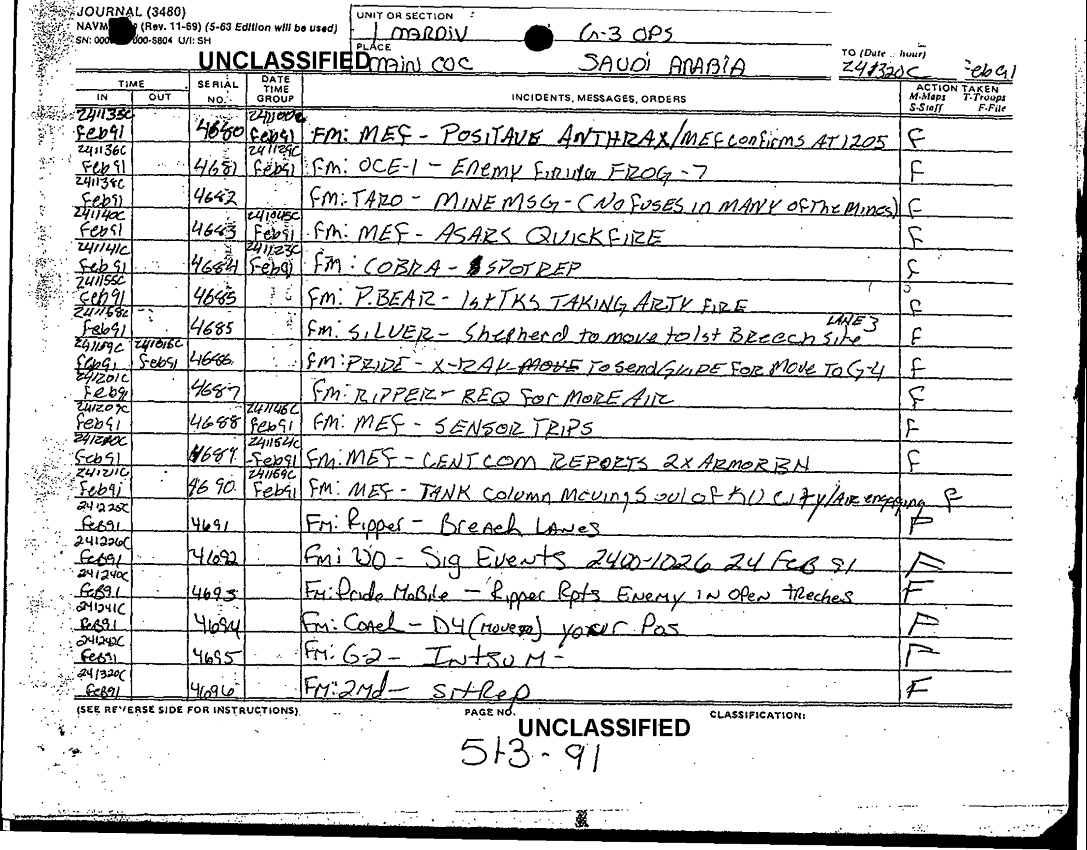 JOURNAL (3480)
NAVM (Rev. 11-69) (5-63 Edition will be used)
SN: 000 000-5804 U/I: SH
UNIT OR SECTION :
1 MARDIV G-3 OPS
PLACE
UNCLASSIFIED MAIN COC SAUDI ARABIA
TO (Date : hour)
241320C Feb 91
TIME IN OUT SERIAL NO. DATE TIME GROUP INCIDENTS, MESSAGES, ORDERS ACTION TAKEN
M-Maps T-Troops
S-Staff F-File
241135C
Feb91 4680 Feb91 FM: MEF - POSITAVE ANTHRAX/MEF confirms AT 1205 F
241136C 241129C
Feb 91 4681 Feb91 Fm: OCE-1 - Enemy Firing FROG-7 F
241138C
Feb91 4682 Fm: TARO - MINE MSG - (No FUSES in MANY OF The Mines) F
241140C 241045C
Feb91 4683 Feb91 Fm: MEF - ASARS QUICKFIRE F
241141C 241123C
Feb 91 4684 Feb91 FM: COBRA - SPOTREP F
241155C
Feb91 4685 Fm: P.BEAR - 1st TKS TAKING ARTY FIRE F
LANE 3
Feb91 4685 Fm: SILVER - Shepherd to move to 1st Breech Site F
241159C 241015C
Feb91 Feb91 4686 Fm: PRIDE - X-RAY MOVE To Send GUIDE FOR Move To G-4 F
241201C
Feb91 4687 Fm: RIPPER - REQ For MORE AIR F
241209C 241146C
Feb91 4688 Feb91 Fm: MEF - SENSOR TRIPS F
241154C
Feb91 4689 Feb91 Fm: MEF - CENTCOM REPORTS 2x Armor BN F
241221C 241159C
Feb91 4690 Feb91 Fm: MEF - TANK Column Moving S out of KU City/Air engaging F
241225C
Feb91 4691 Fm: Ripper - Breach Lanes F
241226C
Feb91 4692 Fm: WO - Sig Events 2400-1026 24 Feb 91 F
241240C
Feb91 4693 Fm: Pride Mobile - Ripper Rpts Enemy in Open Treches F
241241C
Feb91 4694 Fm: Coach - D4 (move to) your Pos F
241242C
Feb91 4695 Fm: G-2 - IntSum - F
241320C
Feb91 4696 Fm: 2Md - SitRep F
(SEE REVERSE SIDE FOR INSTRUCTIONS) PAGE NO. CLASSIFICATION:
UNCLASSIFIED
513-91